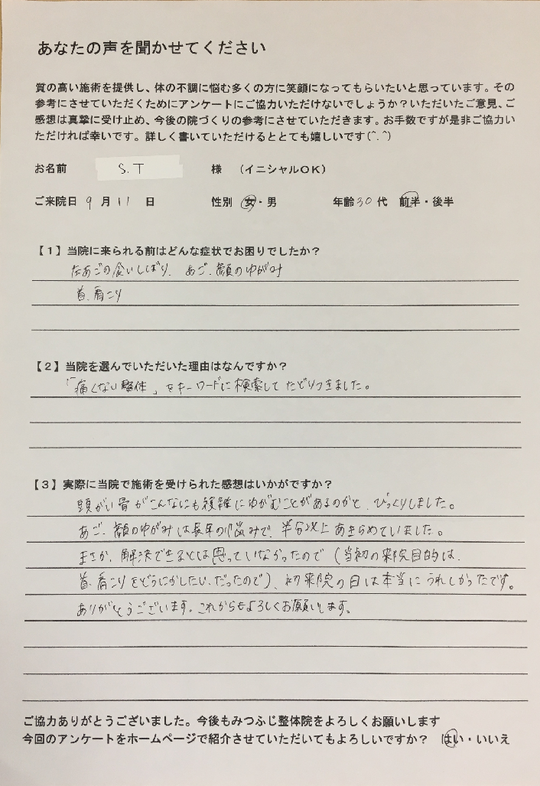 あなたの声を聞かせてください
質の高い施術を提供し、体の不調に悩む多くの方に笑顔になってもらいたいと思っています。その
参考にさせていただくためにアンケートにご協力いただけないでしょうか？いただいたご意見、ご
感想は真摯に受け止め、今後の院づくりの参考にさせていただきます。お手数ですが是非ご協力い
ただければ幸いです。詳しく書いていただけるととても嬉しいです(^.^)
お名前 S.T 様 （イニシャルOK）
ご来院日 9 月 11 日 性別 女・男 年齢 30 代 前半・後半
【１】当院に来られる前はどんな症状でお困りでしたか？
左あごの食いしばり、あご、顔のゆがみ
首、肩こり
【２】当院を選んでいただいた理由はなんですか？
「痛くない整体」をキーワードに検索してたどりつきました。
【３】実際に当院で施術を受けられた感想はいかがですか？
頭がい骨がこんなにも複雑にゆがむことがあるのかと、びっくりしました。
あご、顔のゆがみは長年の悩みで、半分以上あきらめていました。
まさか、解決できるとは思っていなかったので（当初の来院目的は、
首、肩こりをどうにかしたい、だったので）、初来院の日は本当にうれしかったです。
ありがとうございます。これからもよろしくお願いします。
ご協力ありがとうございました。今後もみつふじ整体院をよろしくお願いします
今回のアンケートをホームページで紹介させていただいてもよろしいですか？ はい・いいえ